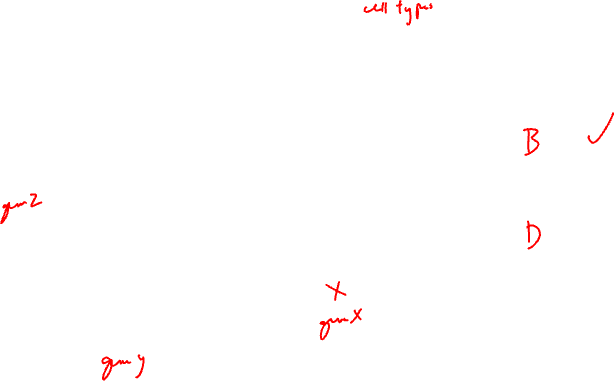 cell types
B
gen Z
D
X
gen X
gen y